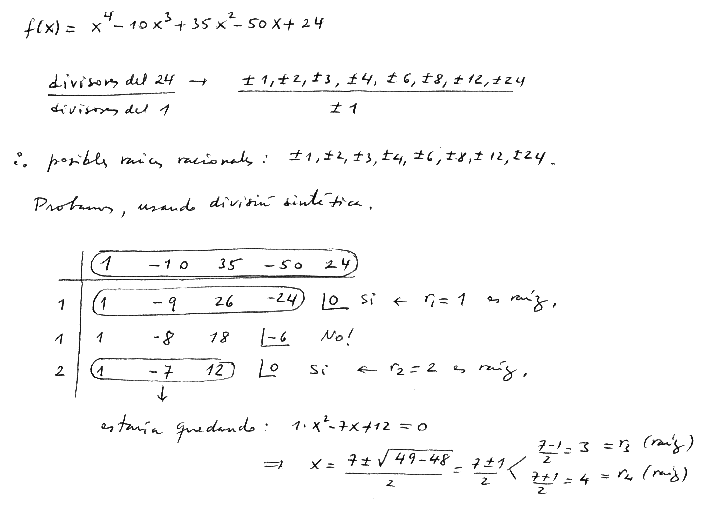 f(x) = x⁴ - 10x³ + 35x² - 50x + 24
divisores del 24 → ±1, ±2, ±3, ±4, ±6, ±8, ±12, ±24
divisores del 1 ±1
∴ posibles raíces racionales: ±1, ±2, ±3, ±4, ±6, ±8, ±12, ±24.
Probamos, usando división sintética.
1 -10 35 -50 24
1 1 -9 26 -24 0 Si ← r₁ = 1 es raíz,
1 1 -8 18 -6 No!
2 1 -7 12 0 Si ← r₂ = 2 es raíz,
↓
estaría quedando: 1·x² - 7x + 12 = 0
⇒ x = (7 ± √(49-48))/2 = (7±1)/2 < (7-1)/2 = 3 = r₃ (raíz)
(7+1)/2 = 4 = r₄ (raíz)